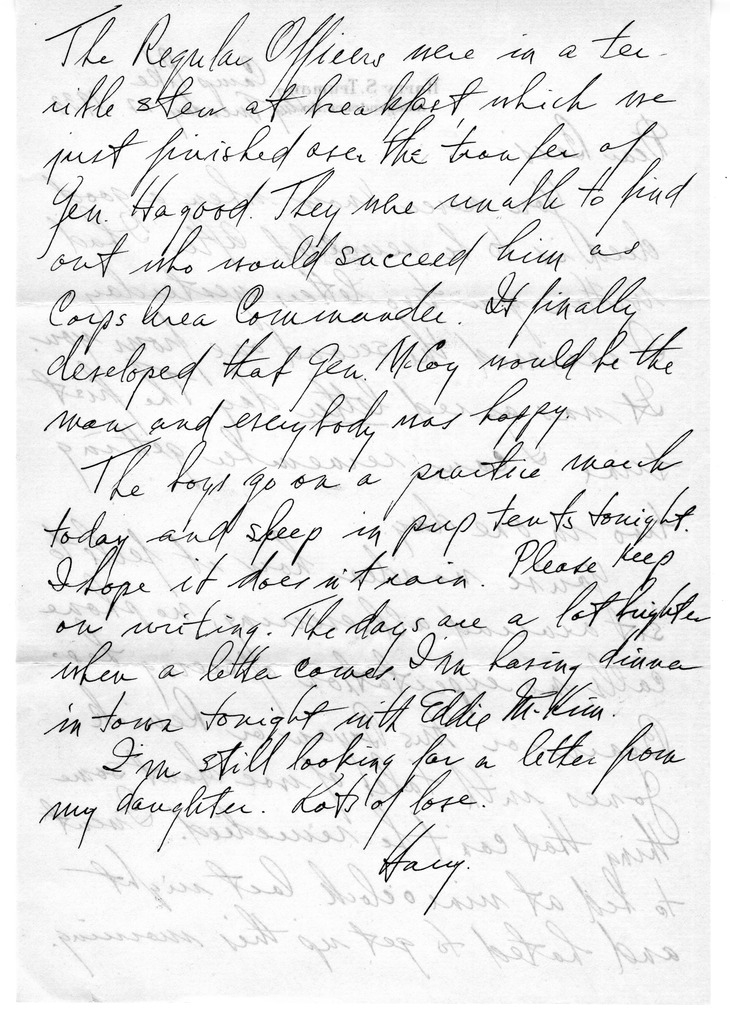 The Regular Officers were in a ter-
rible stew at breakfast, which we
just finished over the transfer of
Gen. Hagood. They were unable to find
out who would succeed him as
Corps Area Commander. It finally
developed that Gen. McCoy would be the
man and everybody was happy.
The boys go on a practice march
today and sleep in pup tents tonight.
I hope it doesn't rain. Please keep
on writing. The days are a lot brighter
when a letter comes. I'm having dinner
in town tonight with Eddie McKim.
I'm still looking for a letter from
my daughter. Lots of love.
Harry.